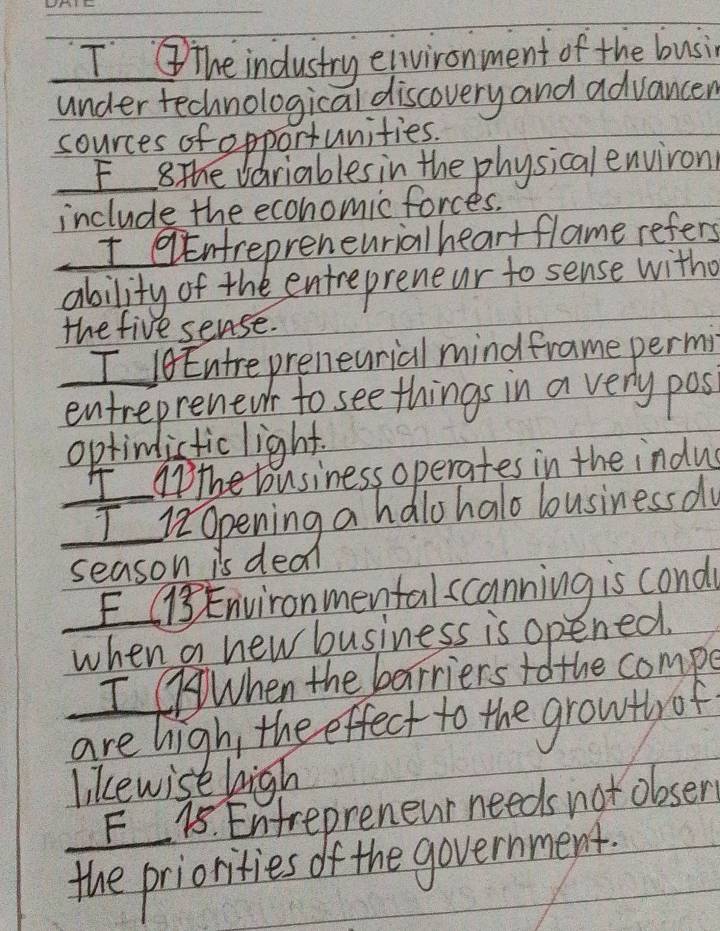 DATE
T 7 The industry environment of the busin
under technological discovery and advancem
sources of opportunities.
F 8. The variables in the physical environm
include the economic forces.
T 9 Entrepreneurial heart flame refers
ability of the entrepreneur to sense witho
the five sense.
T 10 Entrepreneurial mind frame permi
entrepreneur to see things in a very posi
optimistic light.
T 11 The business operates in the indus
T 12 Opening a halo halo business du
season is deal
F 13 Environmental scanning is condu
when a new business is opened.
T 14 When the barriers to the compe
are high, the effect to the growth of
likewise high
F 15. Entrepreneur needs not observ
the priorities of the government.